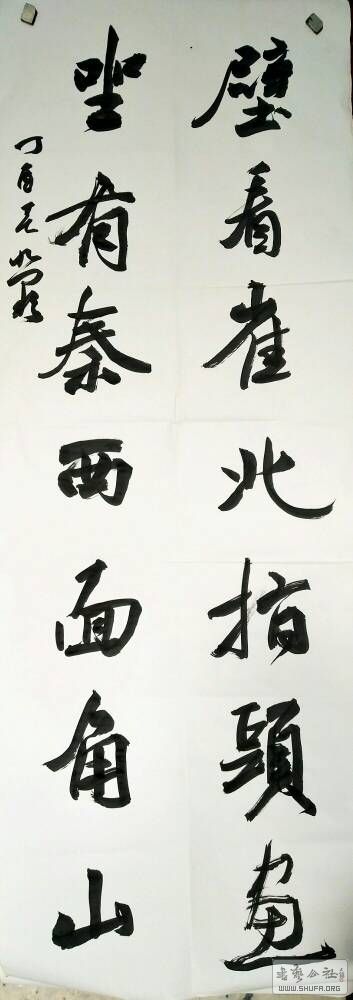 壁看崔北指頭畫
坐有秦西面角山
丁酉
书艺公社
WWW.SHUFA.ORG